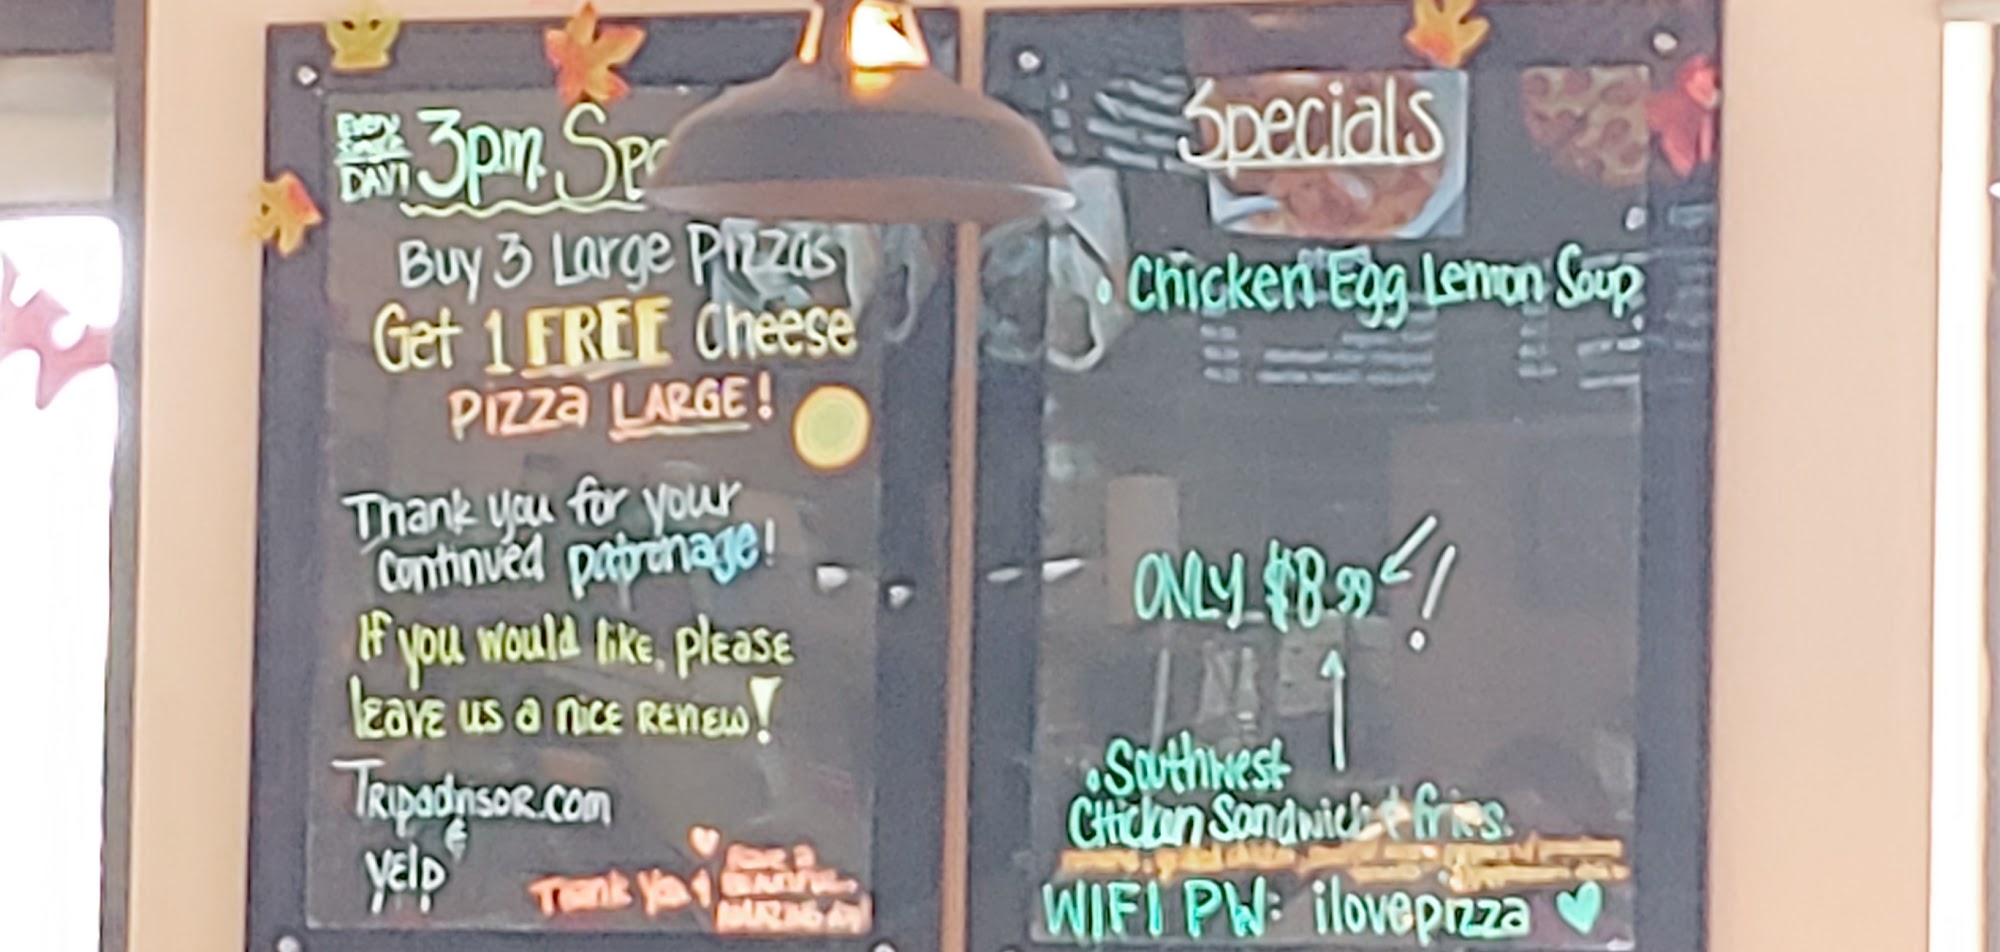 Every
Single
DAY! 3pm Spe
Buy 3 Large Pizzas
Get 1 FREE Cheese
Pizza LARGE!
Thank you for your
continued patronage!
If you would like, please
leave us a nice review!
Tripadvisor.com
&
Yelp
Thank you &
Have a
BEAUTIFUL
AMAZING day
Specials
• Chicken Egg Lemon Soup
ONLY $8.99!
• Southwest
Chicken Sandwich & fries.
WIFI PW: ilovepizza